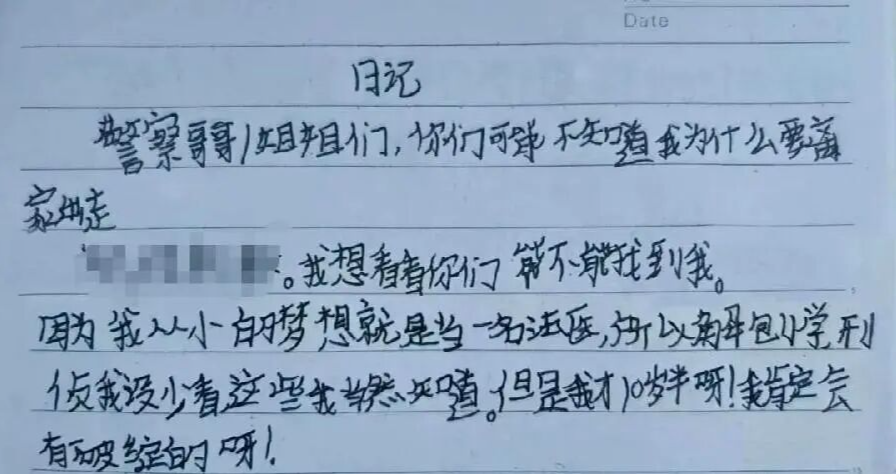 Date
日记
警察哥哥/姐姐们,你们可能不知道我为什么要离
家出走
。我想看看你们能不能找到我。
因为我从小的梦想就是当一名法医,所以解剖包小学刑
侦我没少看这些我当然知道。但是我才10岁半呀!我肯定会
有破绽的呀!